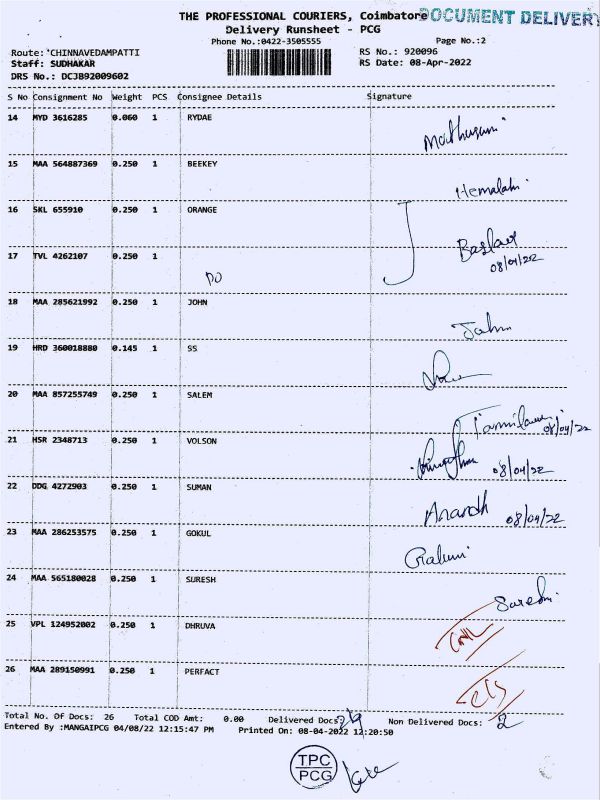 THE PROFESSIONAL COURIERS, Coimbatore DOCUMENT DELIVERY
Delivery Runsheet - PCG
Phone No.:0422-3505555 Page No.:2
Route: CHINNAVEDAMPATTI RS No.: 920096
Staff: SUDHAKAR RS Date: 08-Apr-2022
DRS No.: DCJB92009602
S No Consignment No Weight PCS Consignee Details Signature
14 MYD 3616285 0.060 1 RYDAE
15 MAA 564887369 0.250 1 BEEKEY
16 SKL 655910 0.250 1 ORANGE
17 TVL 4262107 0.250 1 DO 08/04/22
18 MAA 285621992 0.250 1 JOHN John
19 HRD 360018880 0.145 1 SS
20 MAA 857255749 0.250 1 SALEM 08/04/22
21 HSR 2348713 0.250 1 VOLSON 08/04/22
22 DDG 4272903 0.250 1 SUMAN Anandh 08/04/22
23 MAA 286253575 0.250 1 GOKUL
24 MAA 565180028 0.250 1 SURESH
25 VPL 124952002 0.250 1 DHRUVA
26 MAA 289150991 0.250 1 PERFACT
Total No. Of Docs: 26 Total COD Amt: 0.00 Delivered Docs: 24 Non Delivered Docs: 2
Entered By :MANGAIPCG 04/08/22 12:15:47 PM Printed On: 08-04-2022 12:20:50
TPC
PCG